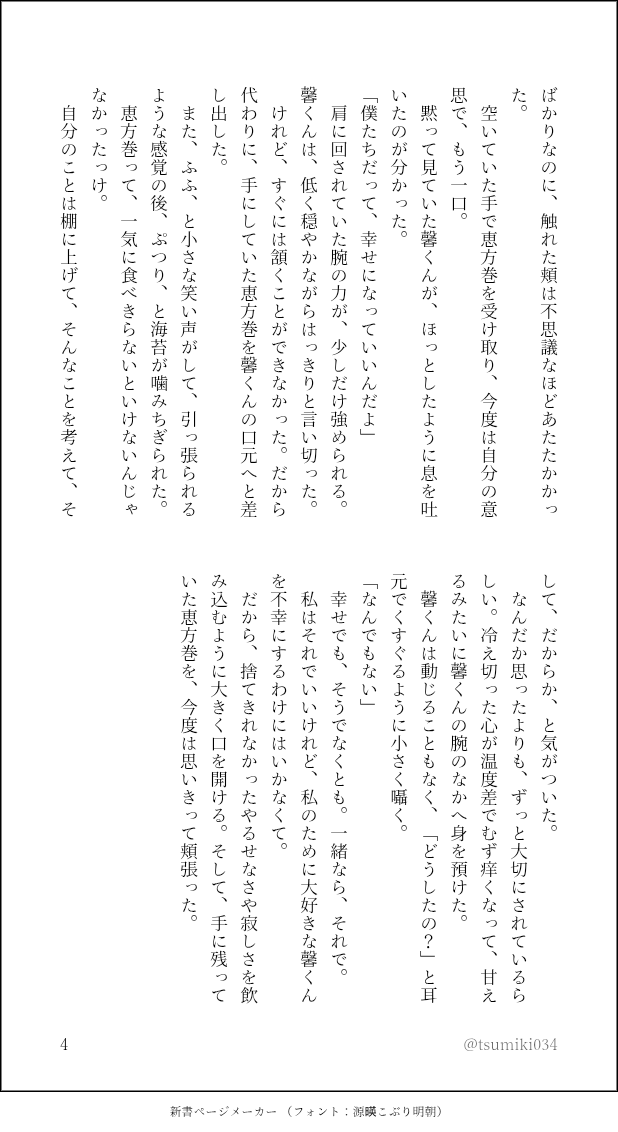 ばかりなのに、触れた頬は不思議なほどあたたかかっ
た。
空いていた手で恵方巻を受け取り、今度は自分の意
思で、もう一口。
黙って見ていた馨くんが、ほっとしたように息を吐
いたのが分かった。
「僕たちだって、幸せになっていいんだよ」
肩に回されていた腕の力が、少しだけ強められる。
馨くんは、低く穏やかながらはっきりと言い切った。
けれど、すぐには頷くことができなかった。だから
代わりに、手にしていた恵方巻を馨くんの口元へと差
し出した。
また、ふふ、と小さな笑い声がして、引っ張られる
ような感覚の後、ぷつり、と海苔が噛みちぎられた。
恵方巻って、一気に食べきらないといけないんじゃ
なかったっけ。
自分のことは棚に上げて、そんなことを考えて、そ
して、だからか、と気がついた。
なんだか思ったよりも、ずっと大切にされているら
しい。冷え切った心が温度差でむず痒くなって、甘え
るみたいに馨くんの腕のなかへ身を預けた。
馨くんは動じることもなく、「どうしたの？」と耳
元でくすぐるように小さく囁く。
「なんでもない」
幸せでも、そうでなくとも。一緒なら、それで。
私はそれでいいけれど、私のために大好きな馨くん
を不幸にするわけにはいかなくて。
だから、捨てきれなかったやるせなさや寂しさを飲
み込むように大きく口を開ける。そして、手に残って
いた恵方巻を、今度は思いきって頬張った。
4
@tsumiki034
新書ページメーカー（フォント：源暎こぶり明朝）